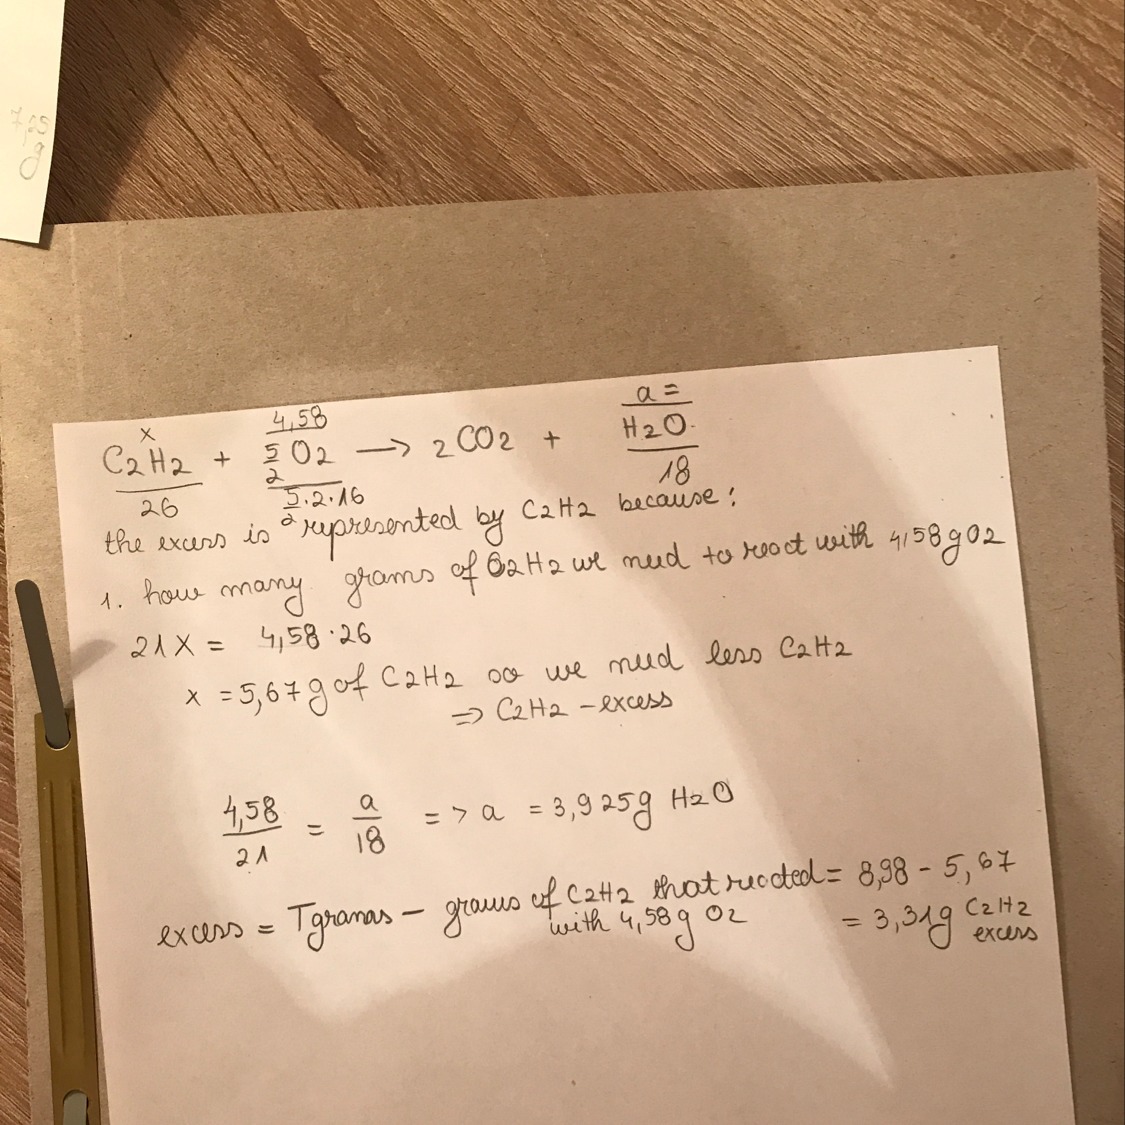 a =
x 4,58 H2O
C2H2 + 5/2 O2 → 2CO2 + H2O
26 5/2·2·16 18
the excess is represented by C2H2 because:
1. how many grams of C2H2 we need to react with 4,58g O2
21x = 4,58·26
x = 5,67g of C2H2 so we need less C2H2
=> C2H2 - excess
4,58/21 = a/18 => a = 3,925g H2O
excess = Tgramas - grams of C2H2 that reacted = 8,98 - 5,67
with 4,58g O2 = 3,31g C2H2
excess